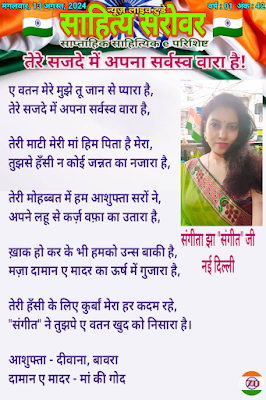 मंगलवार, 13 अगस्त, 2024
न्यूज़ लाइव टुडे
वर्ष : 01 अंक : 42
साहित्य सरोवर
साप्ताहिक साहित्यिक e परिशिष्ट
तेरे सजदे में अपना सर्वस्व वारा है!
ए वतन मेरे मुझे तू जान से प्यारा है,
तेरे सजदे में अपना सर्वस्व वारा है,
तेरी माटी मेरी मां हिम पिता है मेरा,
तुझसे हँसी न कोई जन्नत का नजारा है,
तेरी मोहब्बत में हम आशुफ्ता सरों ने,
अपने लहू से कर्ज़ वफ़ा का उतारा है,
ख़ाक हो कर के भी हमको उन्स बाकी है,
मज़ा दामान ए मादर का ऊर्ष में गुजारा है,
तेरी हँसी के लिए कुर्बां मेरा हर कदम रहे,
"संगीत" ने तुझपे ए वतन खुद को निसारा है।
आशुफ्ता - दीवाना, बावरा
दामान ए मादर - मां की गोद
संगीता झा "संगीत" जी
नई दिल्ली